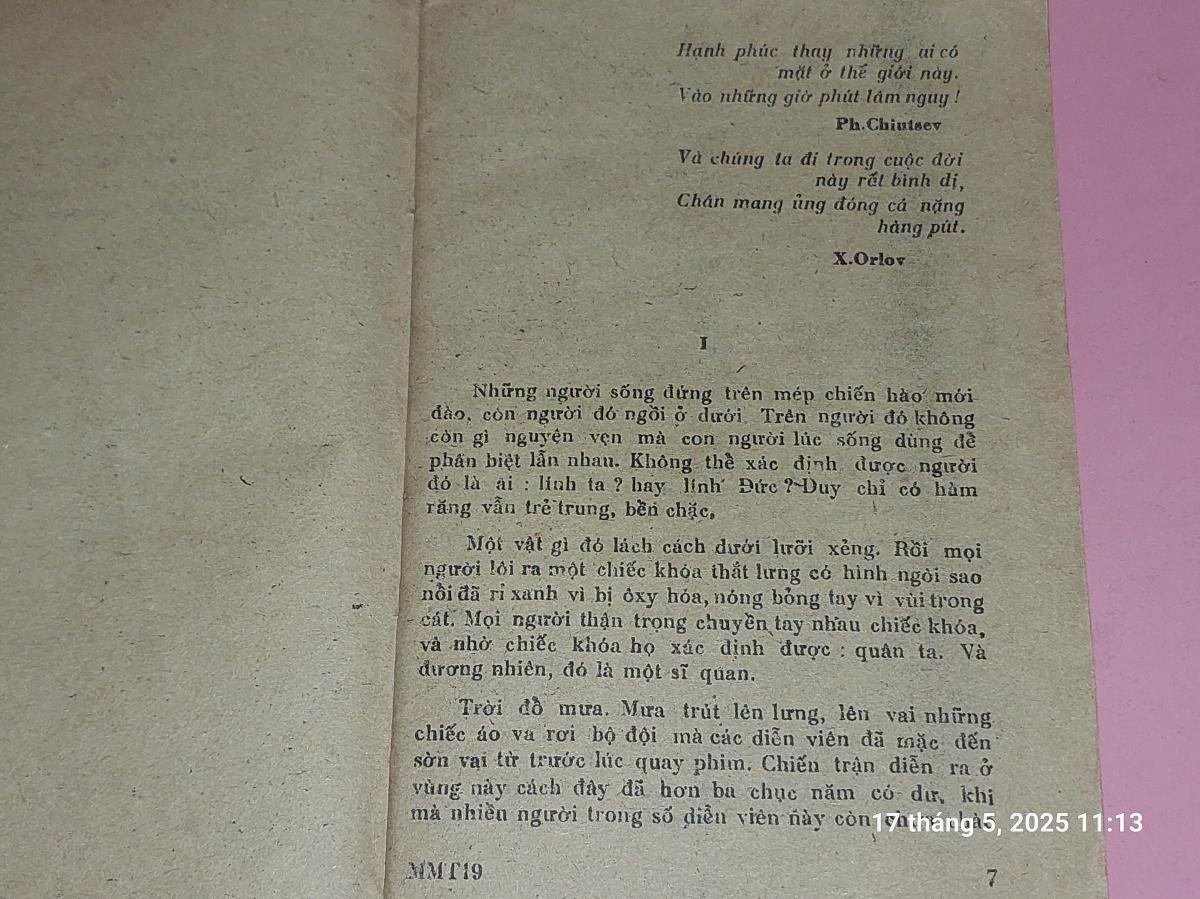 Hạnh phúc thay những ai có
mặt ở thế giới này.
Vào những giờ phút lâm nguy !
Ph.Chiutsev
Và chúng ta đi trong cuộc đời
này rất bình dị,
Chân mang ủng đóng cá nặng
hàng pút.
X.Orlov
I
Những người sống đứng trên mép chiến hào mới
đào, còn người đó ngồi ở dưới. Trên người đó không
còn gì nguyên vẹn mà con người lúc sống dùng để
phân biệt lẫn nhau. Không thể xác định được người
đó là ai : lính ta ? hay lính Đức ? Duy chỉ có hàm
răng vẫn trẻ trung, bền chặc,
Một vật gì đó lách cách dưới lưỡi xẻng. Rồi mọi
người lôi ra một chiếc khóa thắt lưng có hình ngòi sao
nồi đã rỉ xanh vì bị ôxy hóa, nóng bỏng tay vì vùi trong
cát. Mọi người thận trọng chuyền tay nhau chiếc khóa,
và nhờ chiếc khóa họ xác định được : quân ta. Và
đương nhiên, đó là một sĩ quan.
Trời đồ mưa. Mưa trút lên lưng, lên vai những
chiếc áo va rơi bộ đội mà các diễn viên đã mặc đến
sờn vai từ trước lúc quay phim. Chiến trận diễn ra ở
vùng này cách đây đã hơn ba chục năm có dư, khi
mà nhiền người trong số diễn viên này còn
17 tháng 5, 2025 11:13
MMT19
7